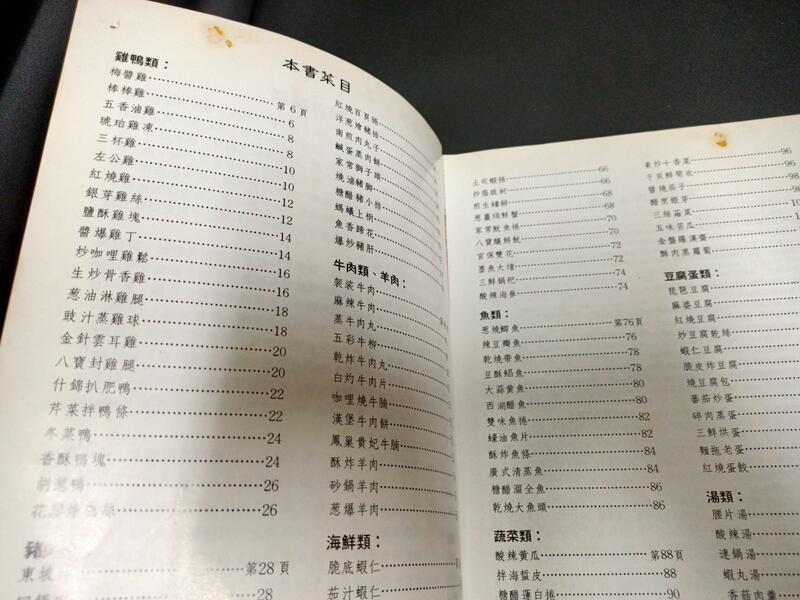 本書菜目
雞鴨類：
梅醬雞 第6頁
棒棒雞 6
五香滷雞 8
琥珀雞凍 8
三杯雞 10
左公雞 10
紅燒雞 12
銀芽雞絲 12
鹽酥雞塊 14
醬爆雞丁 14
炒咖哩雞鬆 16
生炒骨香雞 16
葱油淋雞腿 18
豉汁蒸雞球 18
金針雲耳雞 20
八寶封雞腿 20
什錦扒肥鴨 22
芹菜拌鴨條 22
冬菜鴨 24
香酥鴨塊 24
胡葱鴨 26
26
豬
東坡 第28頁
28
紅燒百頁捲
洋葱燴豬排
南煎肉丸子
鹹蛋蒸肉餅
家常獅子頭
燒滷豬腳
糖醋豬小排
螞蟻上樹
魚香蹄花
爆炒豬肝
牛肉類、羊肉：
製裝牛肉
麻辣牛肉
蒸牛肉丸
五彩牛柳
乾炸牛肉丸
白灼牛肉片
咖哩燒牛腩
漢堡牛肉餅
鳳巢貴妃牛腩
酥炸羊肉
砂鍋羊肉
葱爆羊肉
海鮮類：
脆底蝦仁
茄汁蝦仁
土司蝦捲 66
66
煎生蠔餅 68
葱薑焗鮮蟹 68
家常魷魚捲 70
八寶釀鮮魷 70
宮保雙花 72
墨魚大㸆 72
三鮮鍋粑 74
酸辣海參 74
魚類：
葱燒鯽魚 第76頁
辣豆瓣魚 76
乾燒帶魚 78
豆酥鯧魚 78
大蒜黃魚 80
西湖醋魚 80
雙味魚捲 82
蠔油魚片 82
酥炸魚條 84
廣式清蒸魚 84
糖醋溜全魚 86
乾燒大魚頭 86
蔬菜類：
酸辣黃瓜 第88頁
拌海蜇皮 88
糖醋蓮白捲 90
素炒十香菜 96
干貝鮮筍衣 96
醬燒茄子
醋烹銀芽
三絲蓊菜
五味苦瓜
金盤羅漢齋
酥肉蒸蘿蔔
豆腐蛋類：
琵琶豆腐
麻婆豆腐
紅燒豆腐
炒豆腐乾絲
蝦仁豆腐
脆皮炸豆腐
燒豆腐包
蕃茄炒蛋
碎肉蒸蛋
三鮮烘蛋
麵拖老蛋
紅燒蛋餃
湯類：
腰片湯
酸辣湯
連鍋湯
蝦丸湯
香菇肉羹